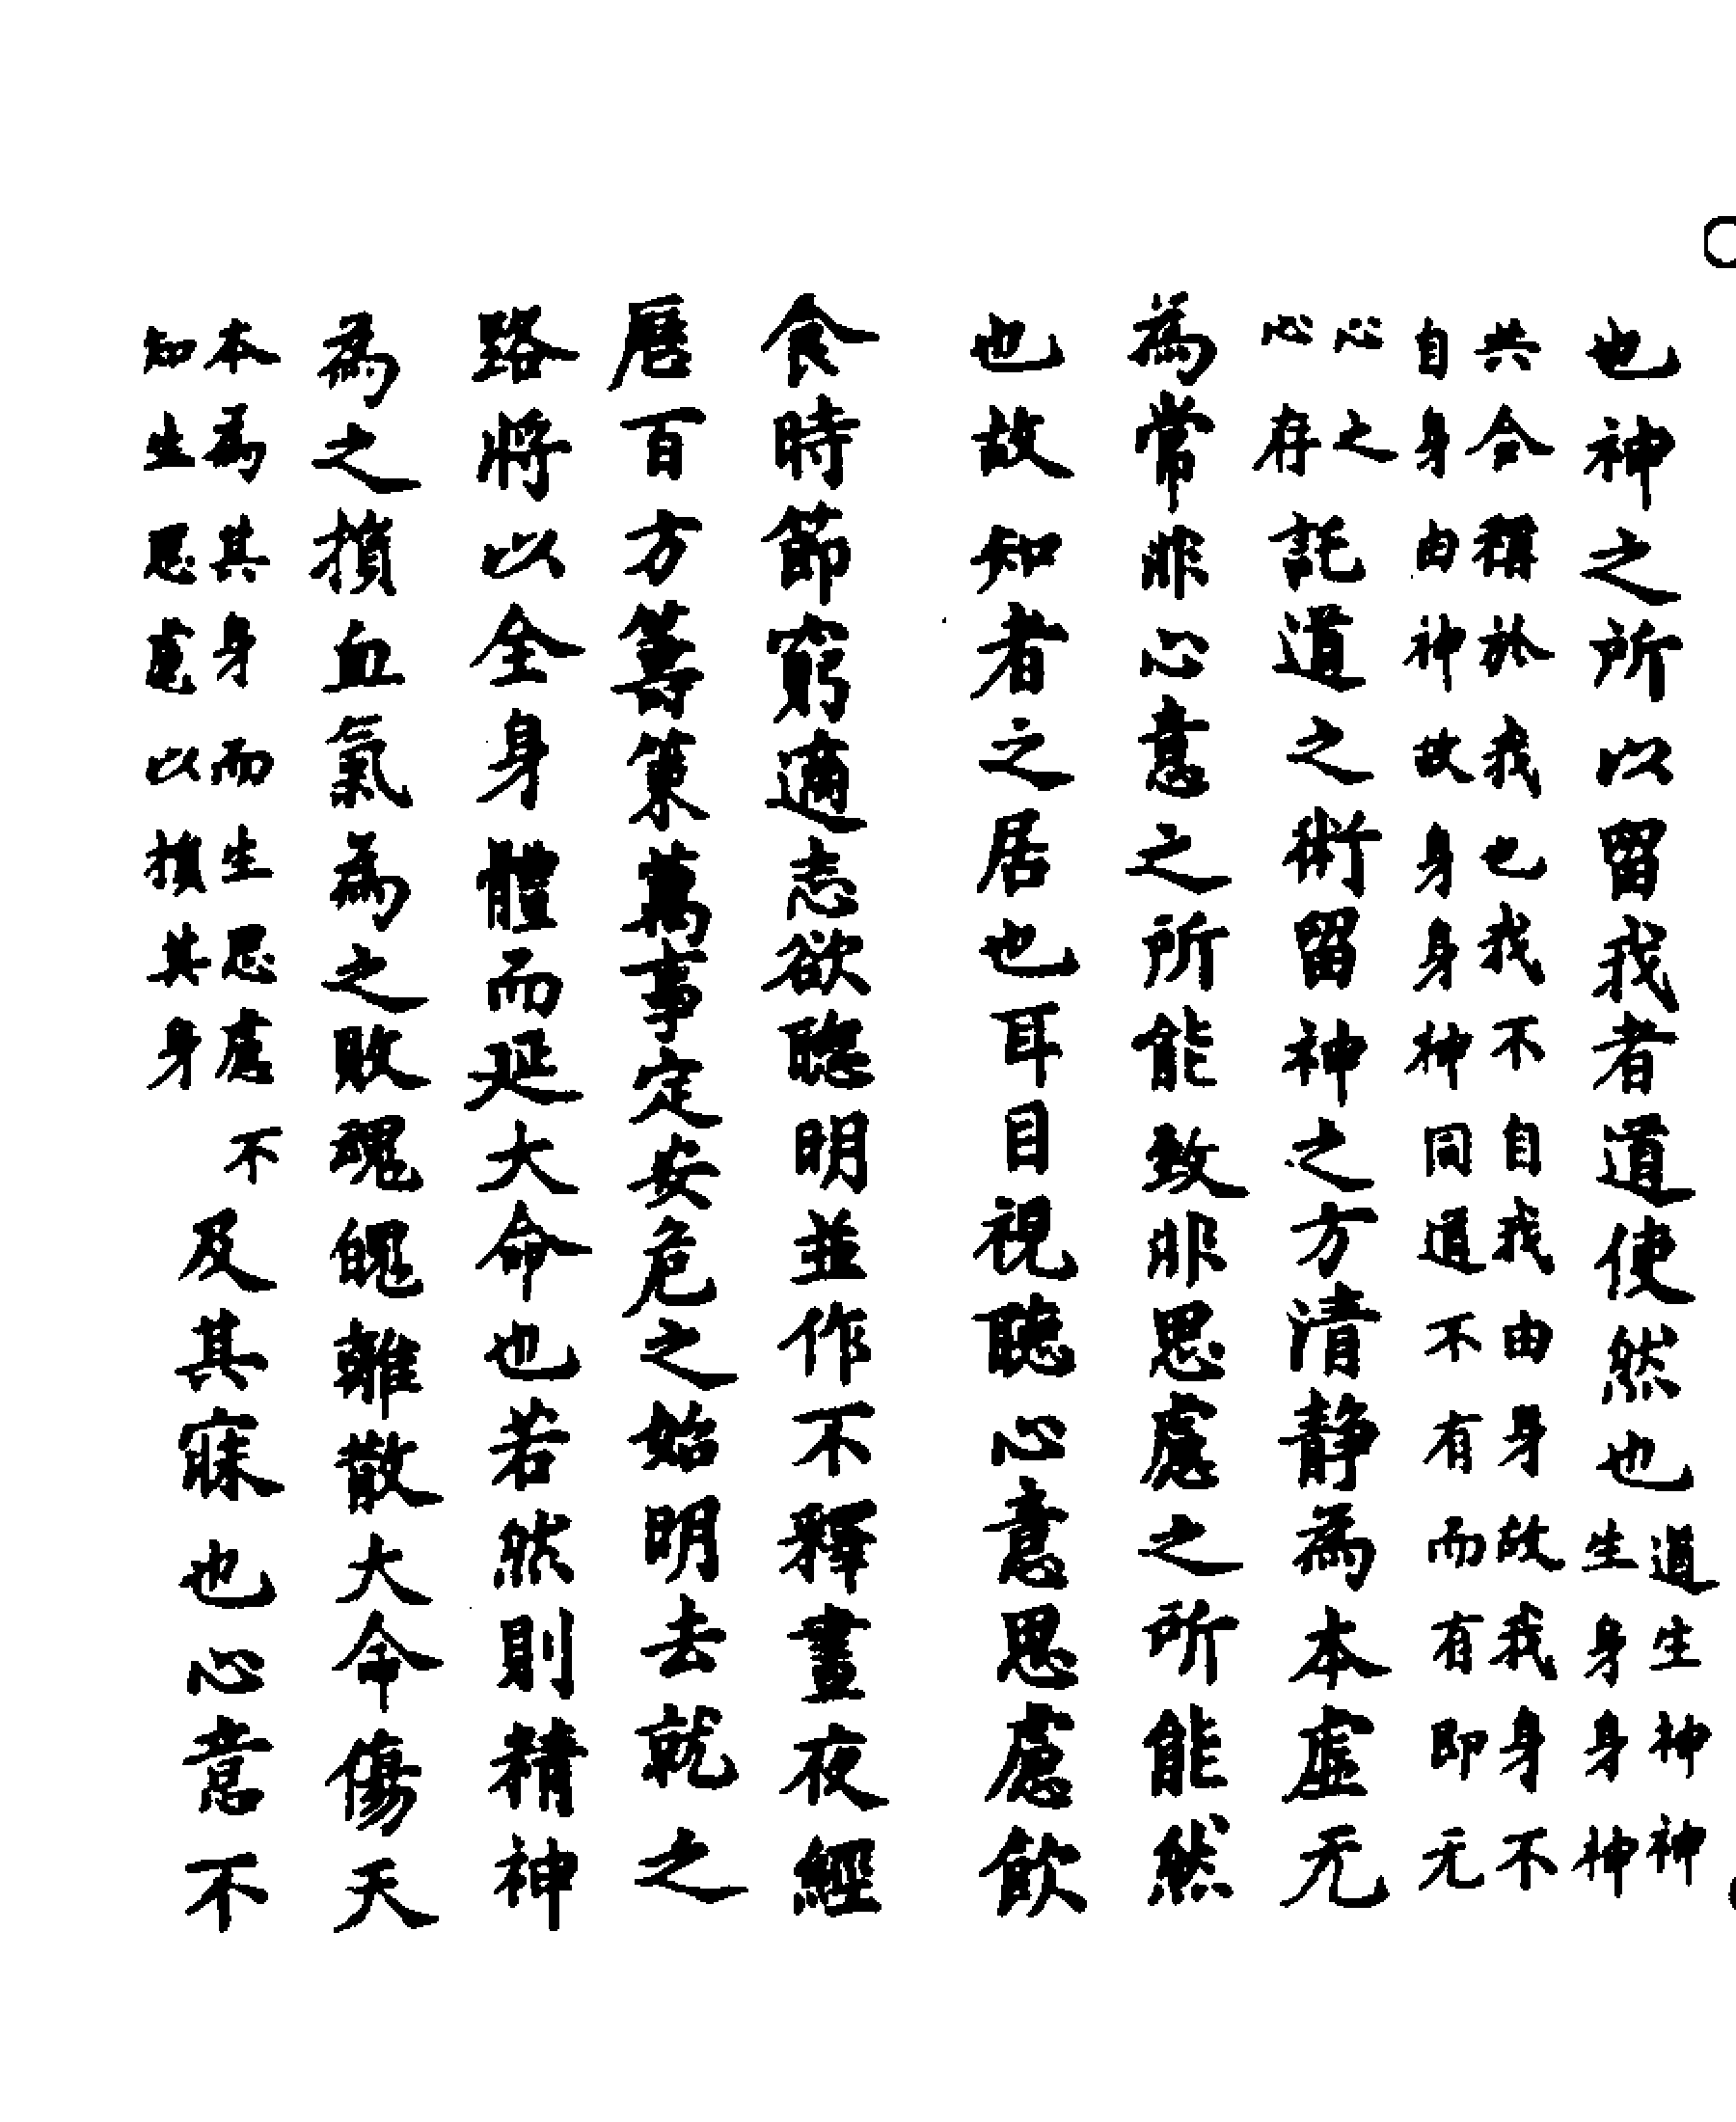 也神之所以留我者道使然也道生神神
生身身神
共合稱於我也我不自我由身故我身不
自身由神故身身神同道不有而有即无
心之
心存
託道之術留神之方清静為本虛无
為常非心意之所能致非思慮之所能然
也故知者之居也耳目視聽心意思慮飲
食時節窮適志欲聰明並作不釋晝夜經
厯百方籌策萬事定安危之始明去就之
路將以全身體而延大命也若然則精神
為之損血氣為之敗魂魄離散大命傷夭
本為其身而生思慮不
知生思慮以損其身
及其寐也心意不